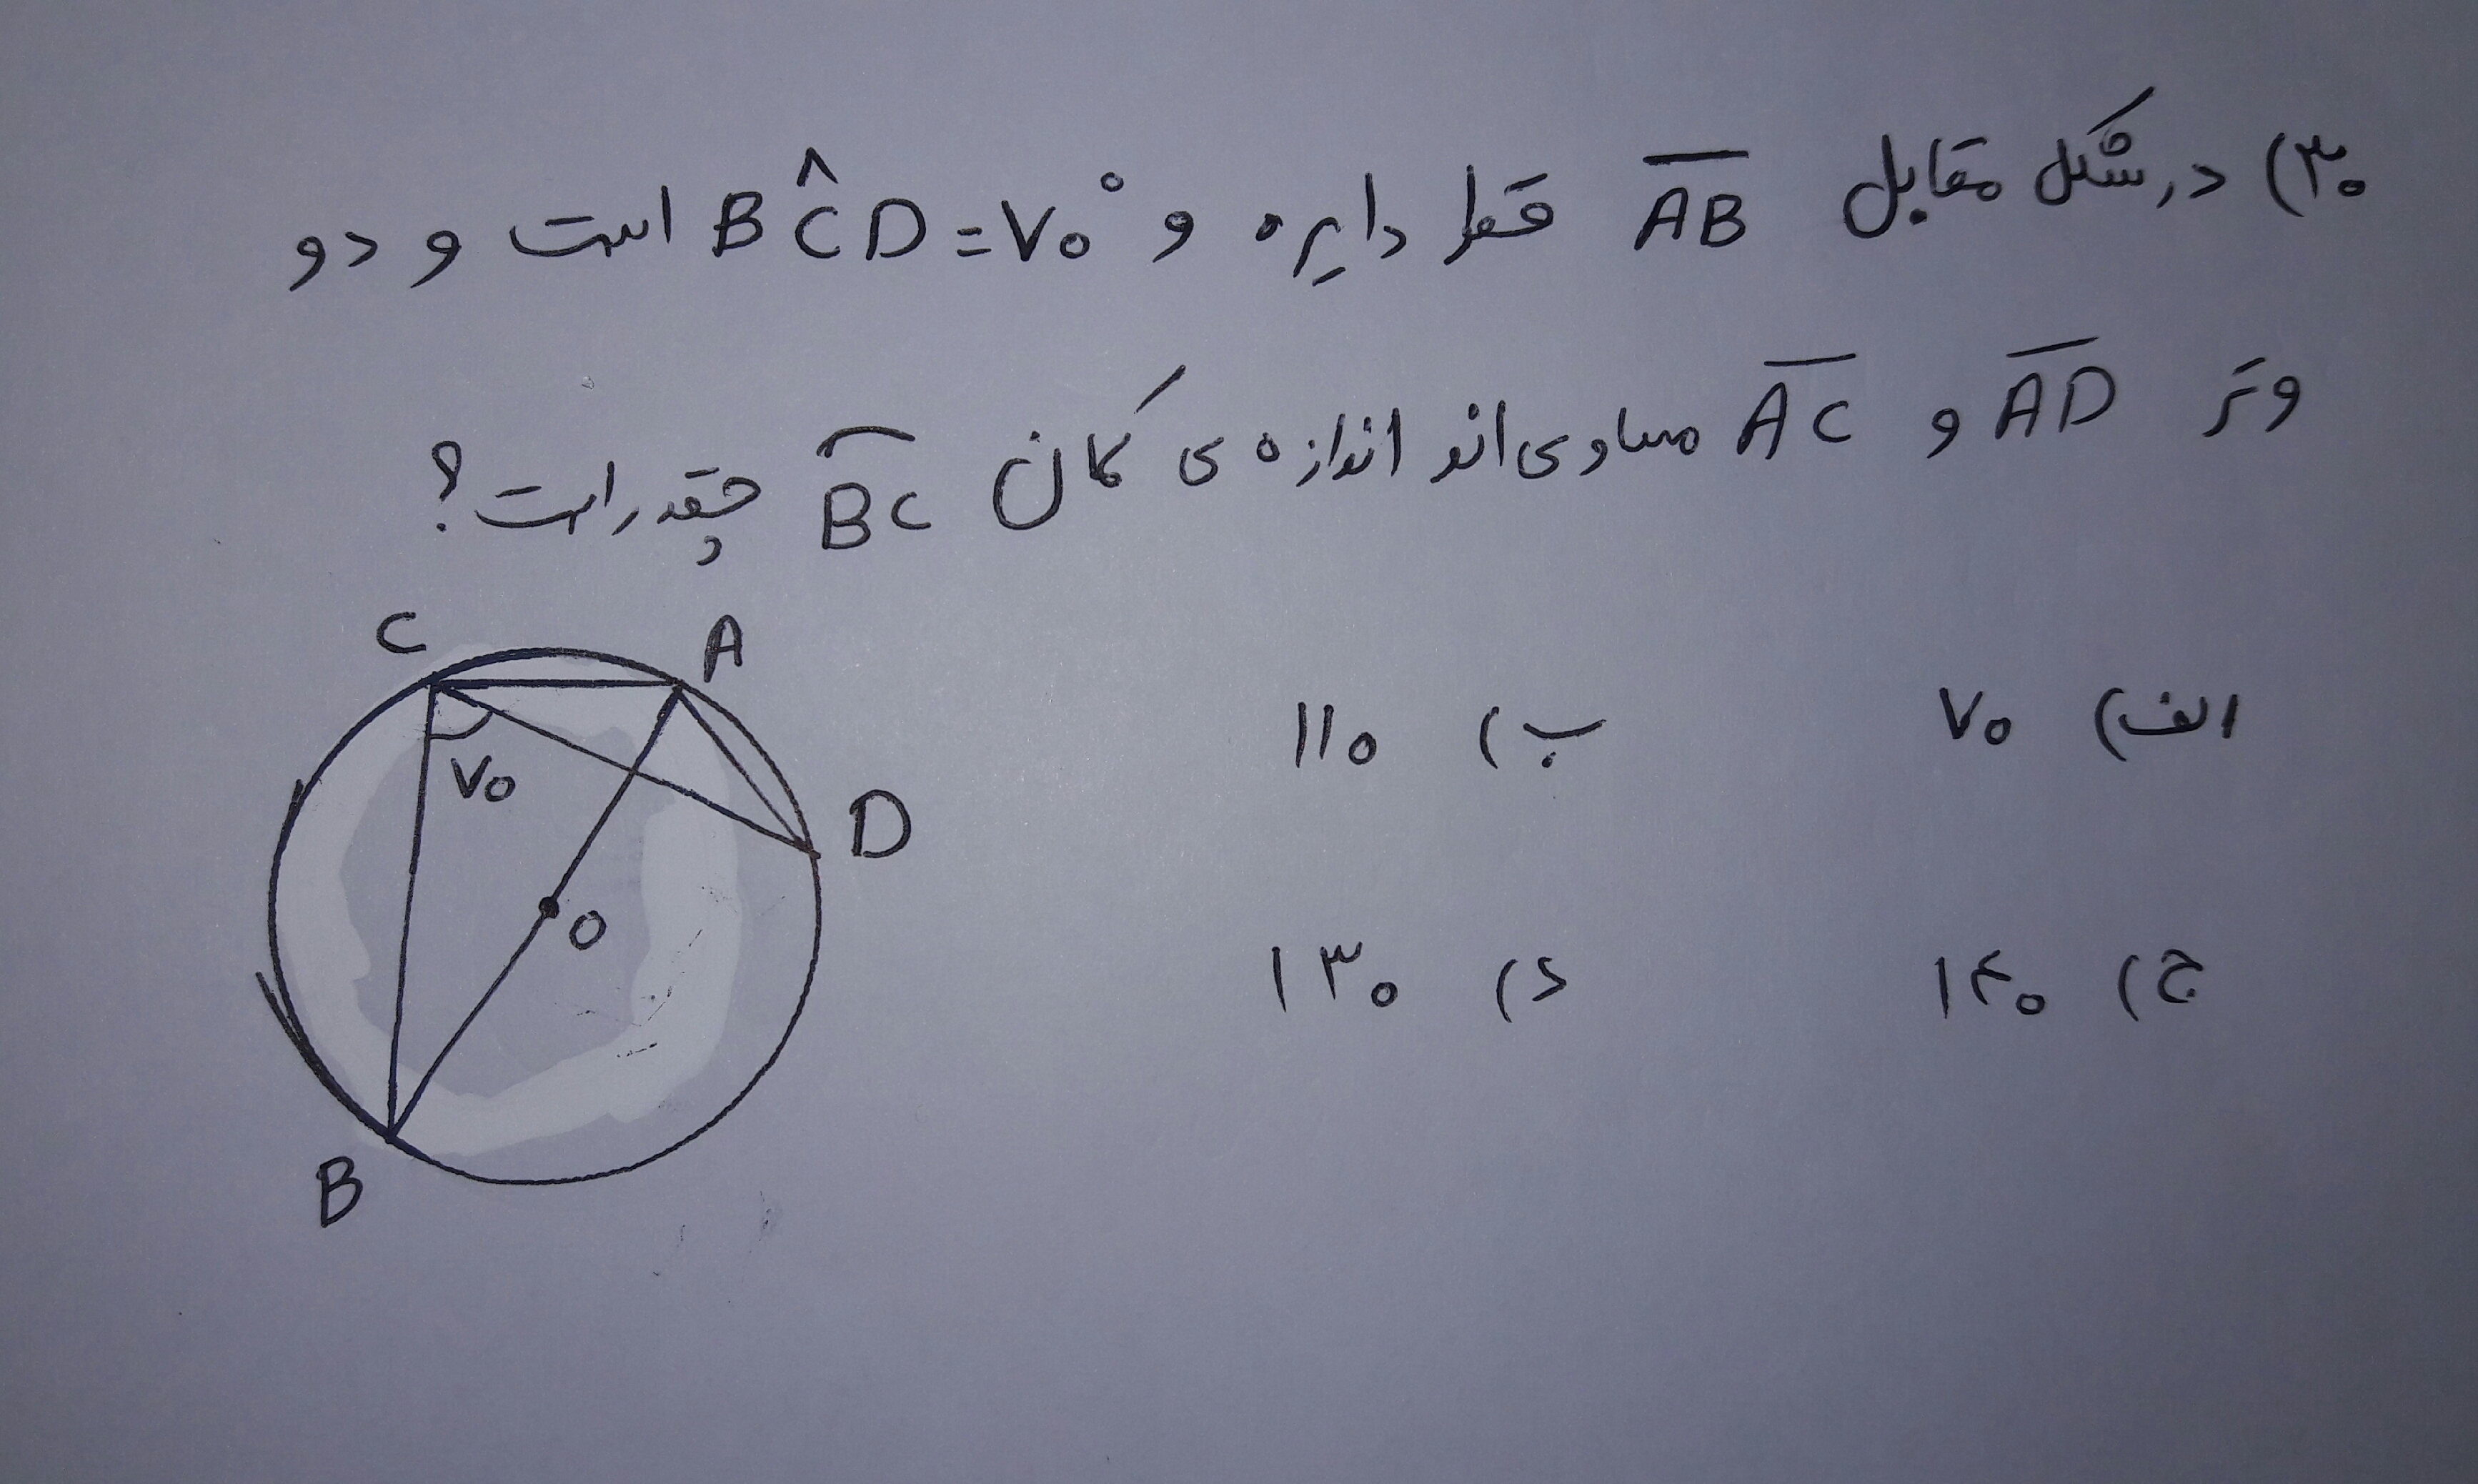 ۳۰) در شکل مقابل AB قطر دایره و BĈD=۷۰° است و دو
وتر AD و AC مساوی‌اند اندازه ی کمان BC چقدر است؟
الف) ۷۰ ب) ۱۱۰
ج) ۱۴۰ د) ۱۳۰
C A
۷۰
D
O
B